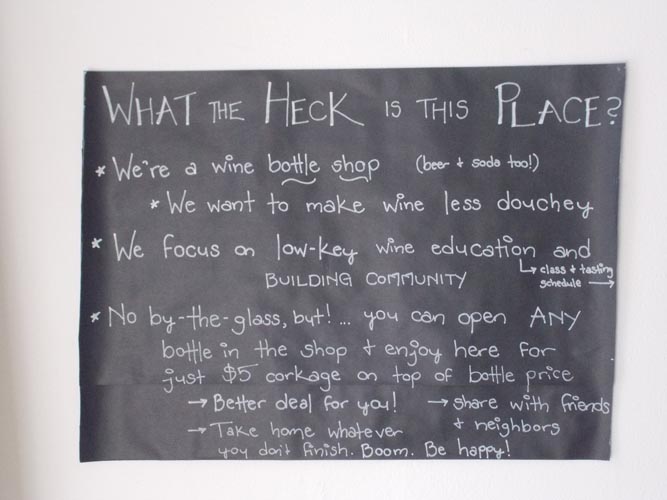 WHAT THE HECK IS THIS PLACE?
* We're a wine bottle shop (beer + soda too!)
* We want to make wine less douchey
* We focus on low-key wine education and
↳ class + tasting
BUILDING COMMUNITY schedule →
* No by-the-glass, but! ... you can open ANY
bottle in the shop + enjoy here for
just $5 corkage on top of bottle price
→ Better deal for you! → share with friends
→ Take home whatever + neighbors
you don't finish. Boom. Be happy!